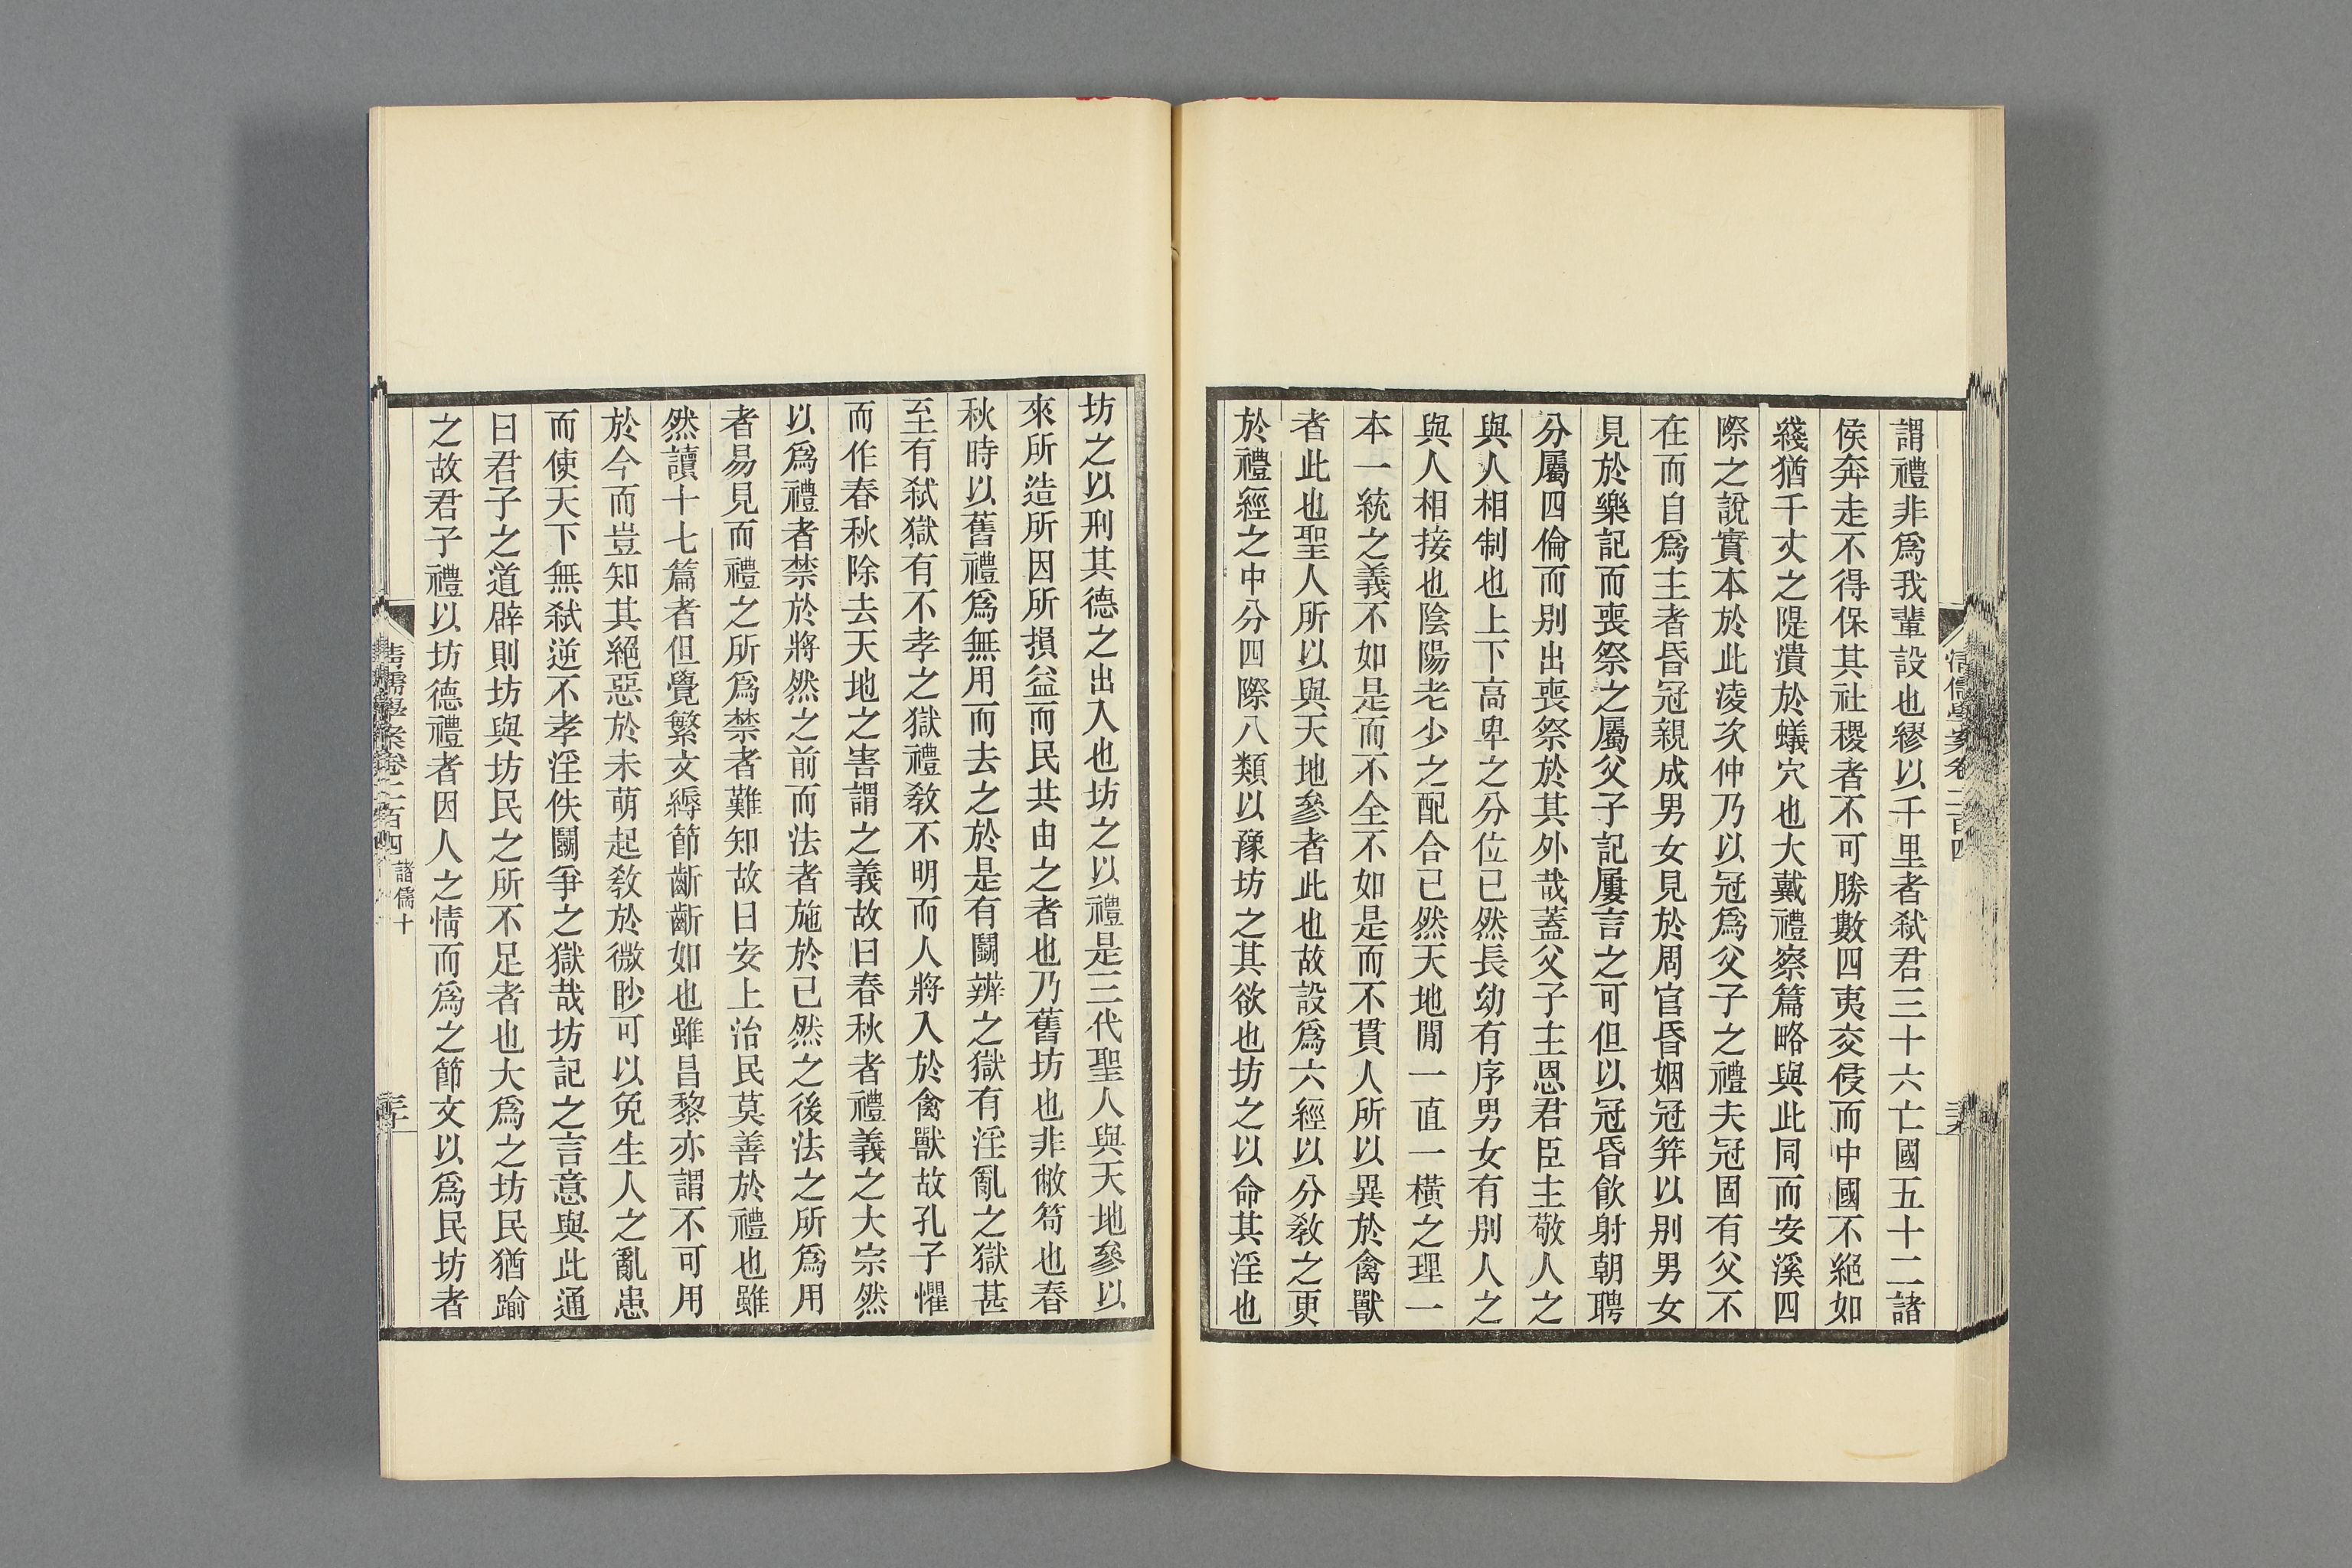 謂禮非爲我輩設也繆以千里者弑君三十六亡國五十二諸
侯奔走不得保其社稷者不可勝數四夷交侵而中國不絕如
綫猶千丈之隄潰於蟻穴也大戴禮察篇略與此同而安溪四
際之說實本於此淩次仲乃以冠爲父子之禮夫冠固有父不
在而自爲主者昏冠親成男女見於周官昏姻冠筓以別男女
見於樂記而喪祭之屬父子記屢言之可但以冠昏飮射朝聘
分屬四倫而別出喪祭於其外哉蓋父子主恩君臣主敬人之
與人相制也上下高卑之分位已然長幼有序男女有別人之
與人相接也陰陽老少之配合已然天地閒一直一橫之理一
本一統之義不如是而不全不如是而不貫人所以異於禽獸
者此也聖人所以與天地參者此也故設爲六經以分敎之更
於禮經之中分四際八類以豫坊之其欲也坊之以命其淫也
坊之以刑其德之出入也坊之以禮是三代聖人與天地參以
來所造所因所損益而民共由之者也乃舊坊也非敝笱也春
秋時以舊禮爲無用而去之於是有鬭辨之獄有淫亂之獄甚
至有弑獄有不孝之獄禮敎不明而人將入於禽獸故孔子懼
而作春秋除去天地之害謂之義故曰春秋者禮義之大宗然
以爲禮者禁於將然之前而法者施於已然之後法之所爲用
者易見而禮之所爲禁者難知故曰安上治民莫善於禮也雖
然讀十七篇者但覺繁文縟節齗齗如也雖昌黎亦謂不可用
於今而豈知其絕惡於未萌起敎於微眇可以免生人之亂患
而使天下無弑逆不孝淫佚鬭爭之獄哉坊記之言意與此通
曰君子之道辟則坊與坊民之所不足者也大爲之坊民猶踰
之故君子禮以坊德禮者因人之情而爲之節文以爲民坊者
清儒學案卷二百四
諸儒十
三十